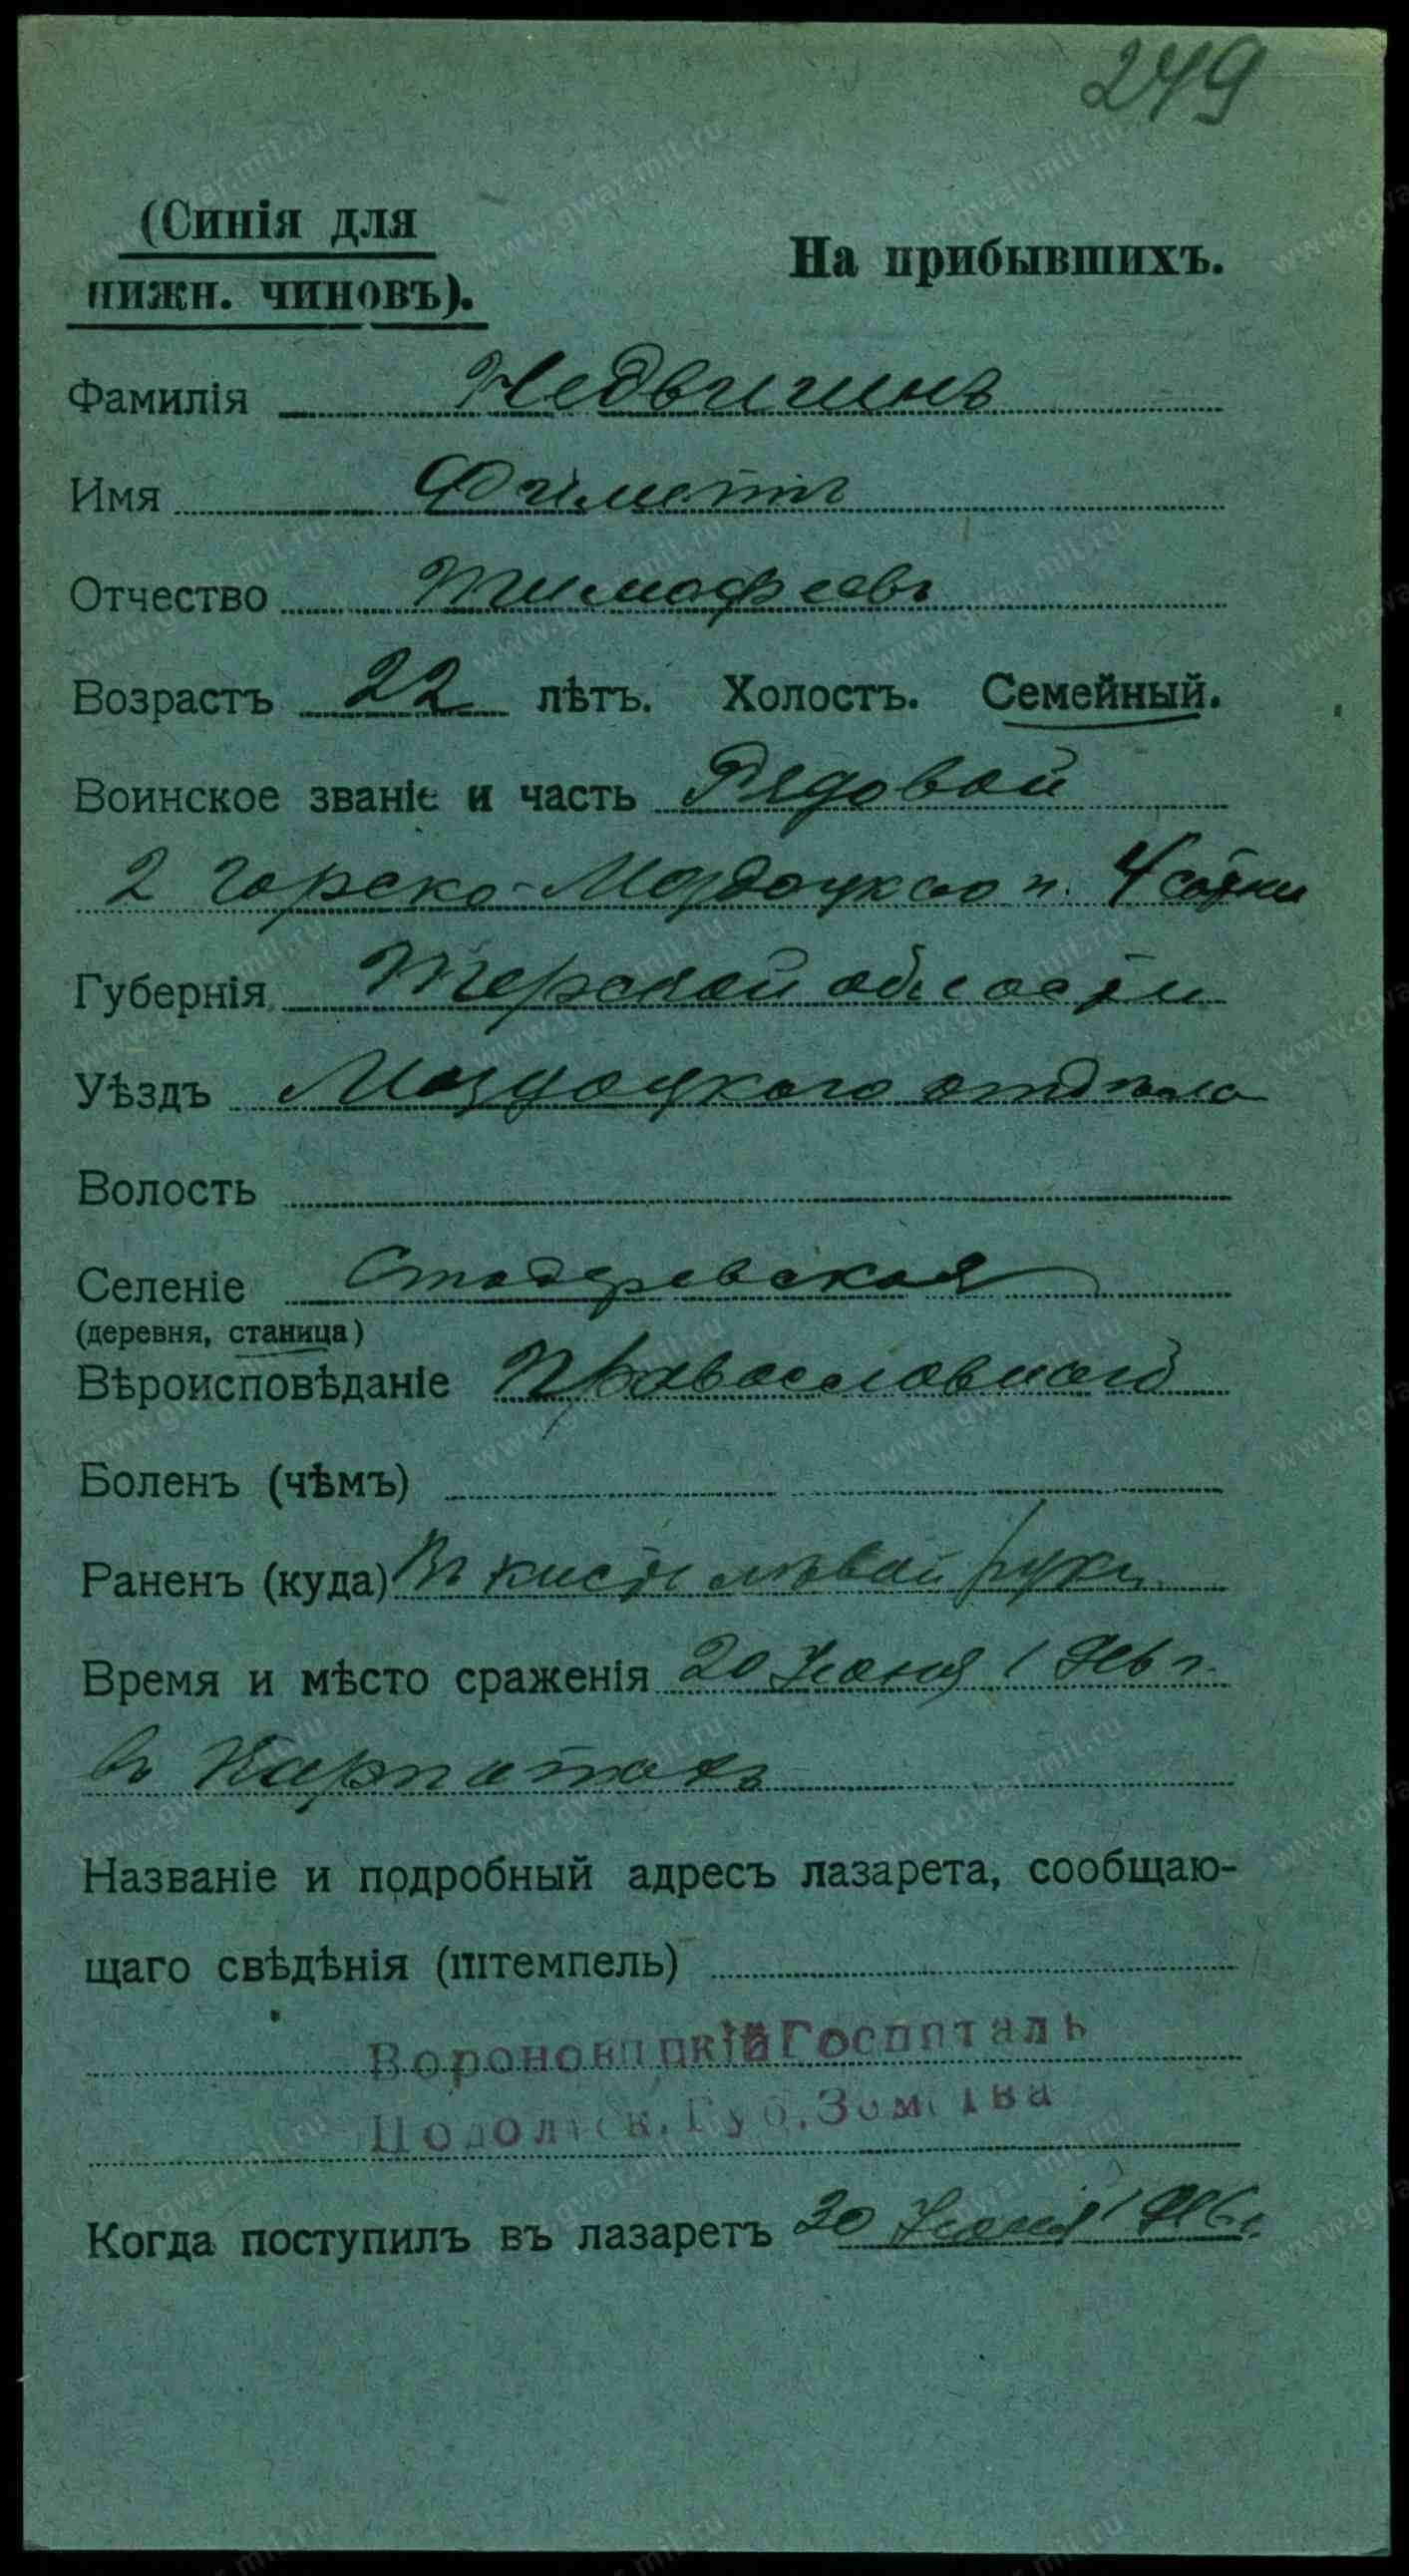 249
(Синія для
нижн. чиновъ).
На прибывшихъ.
Фамилія Недвигинъ
Имя
Отчество Тимофеевъ
Возрастъ 22 лѣтъ. Холостъ. Семейный.
Воинское званіе и часть Рядовой
2 Горско-Моздоцкаго п. 4 сотни
Губернія Терской области
Уѣздъ Моздоцкого отдѣла
Волость
Селеніе
(деревня, станица)
Вѣроисповѣданіе Православной
Боленъ (чѣмъ)
Раненъ (куда) Въ кисть лѣвой руки
Время и мѣсто сраженія 20 Іюня 1916 г.
въ Карпатахъ
Названіе и подробный адресъ лазарета, сообщаю-
щаго свѣдѣнія (штемпель)
Вороновицкій Госпиталь
Подольск. Губ. Земства
Когда поступилъ въ лазаретъ 30 Іюня 1916 г.